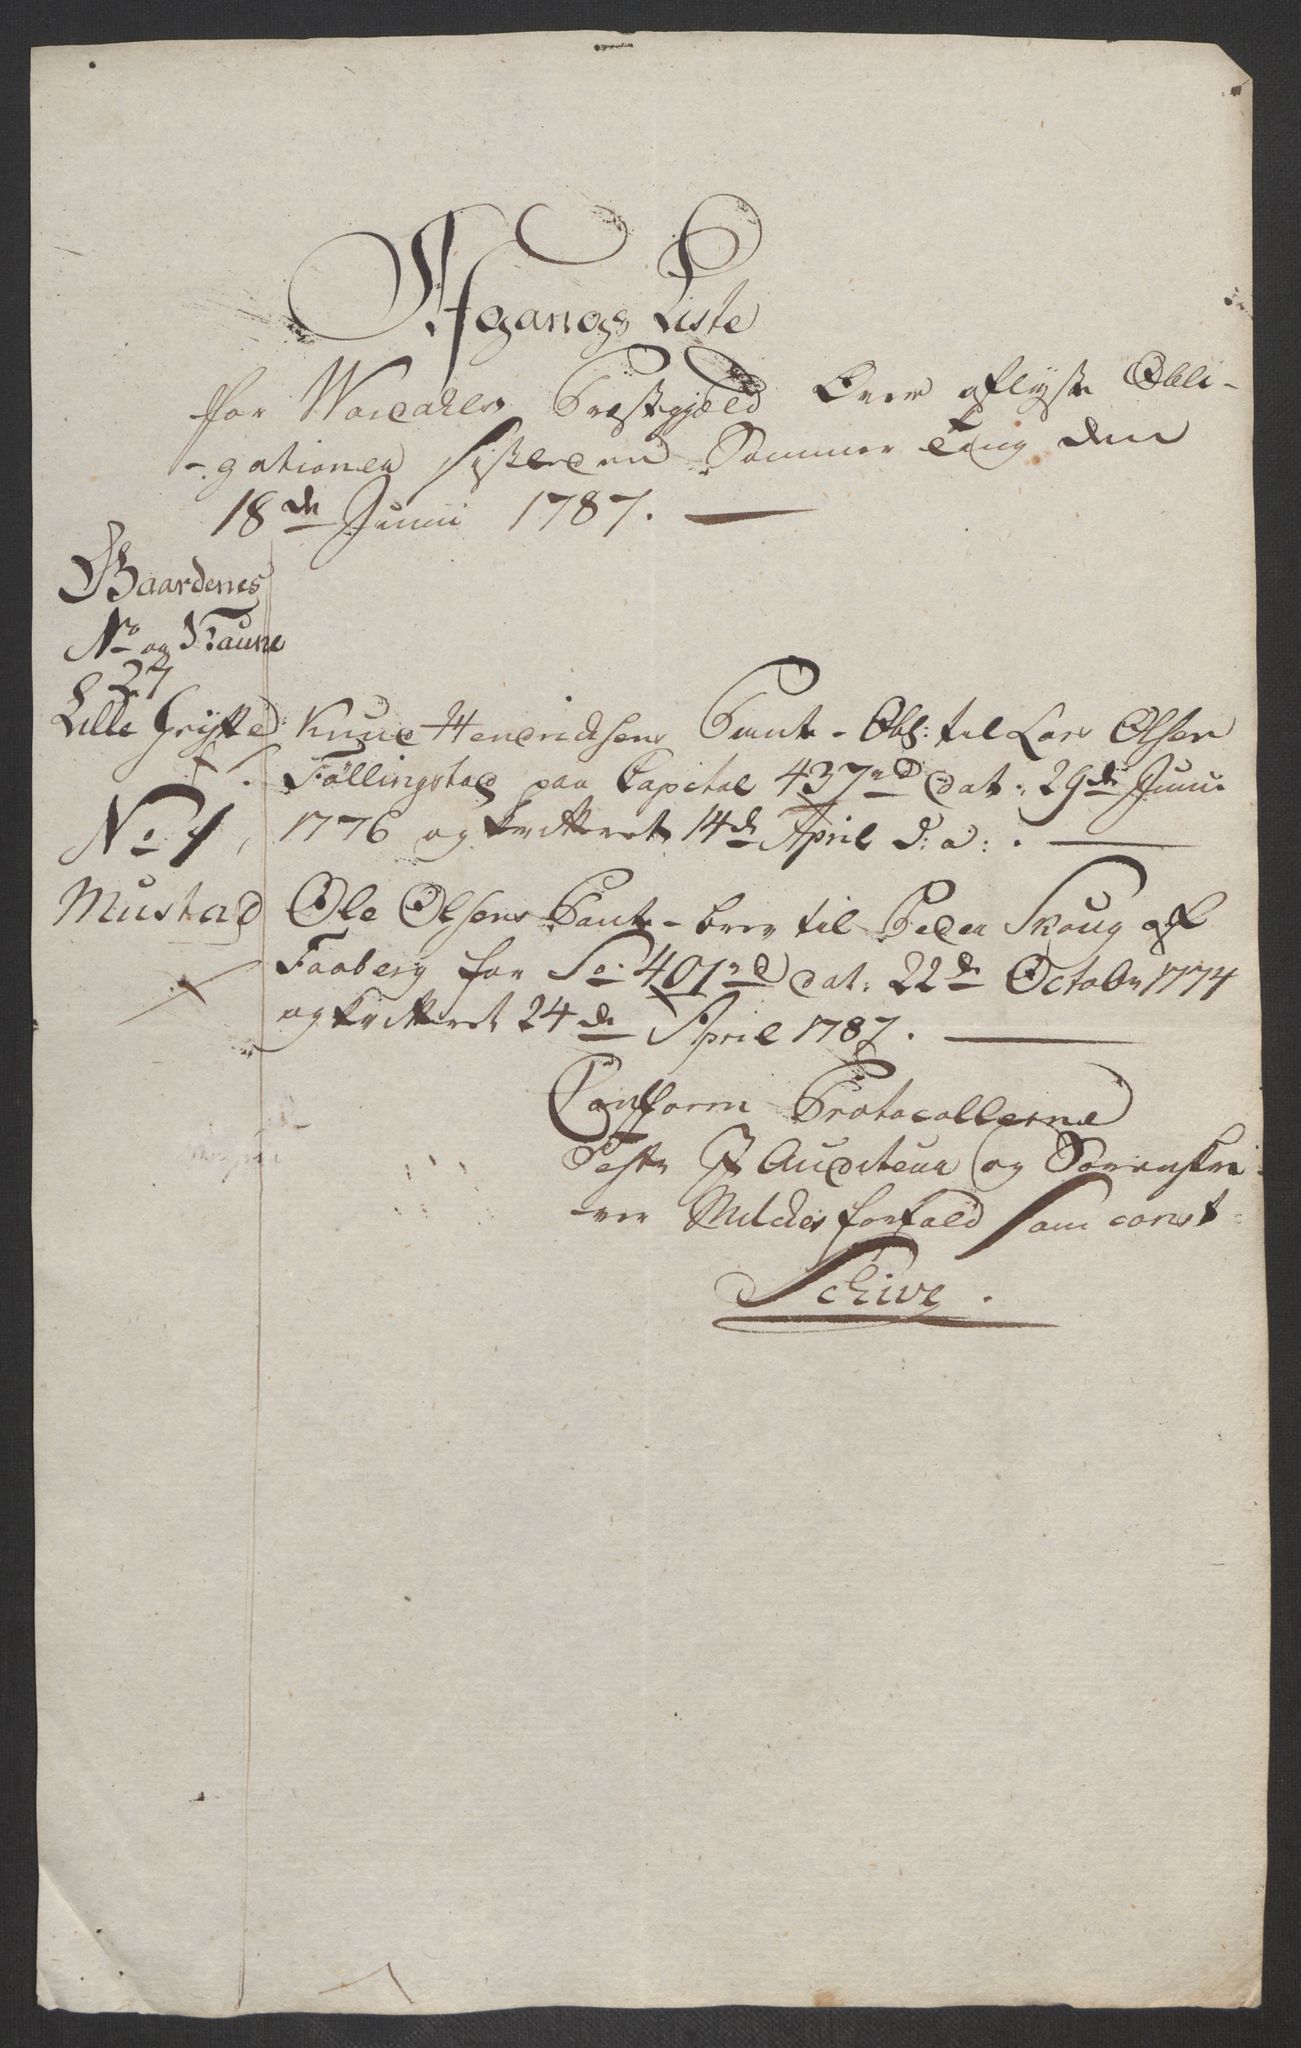 Afgangs Liste
for Wardahls Præstegjæld Over aflyste Obli-
-gationer Sidstleden Sommer Ting den
18de Junii 1787.
Gaardenes
No og Naune
27
Lille Gryttе Knud Hendrichsens Pant-Obl: til Lars Olsen
Föllingstad paa Capital 437rd dat: 29de Junii
1776 og kvitteret 14de April d: a: .
No 1,
Mustad Ole Olsens Pant-brev til Peder Skoug af
Faaberg for S: 401rd dat: 22de Octobr 1774
og kvitteret 24de April 1787.
Conform Protocollerne
Test: I Auditeur og Sorenskri-
-ver Mildes forfald som const:
Schive.